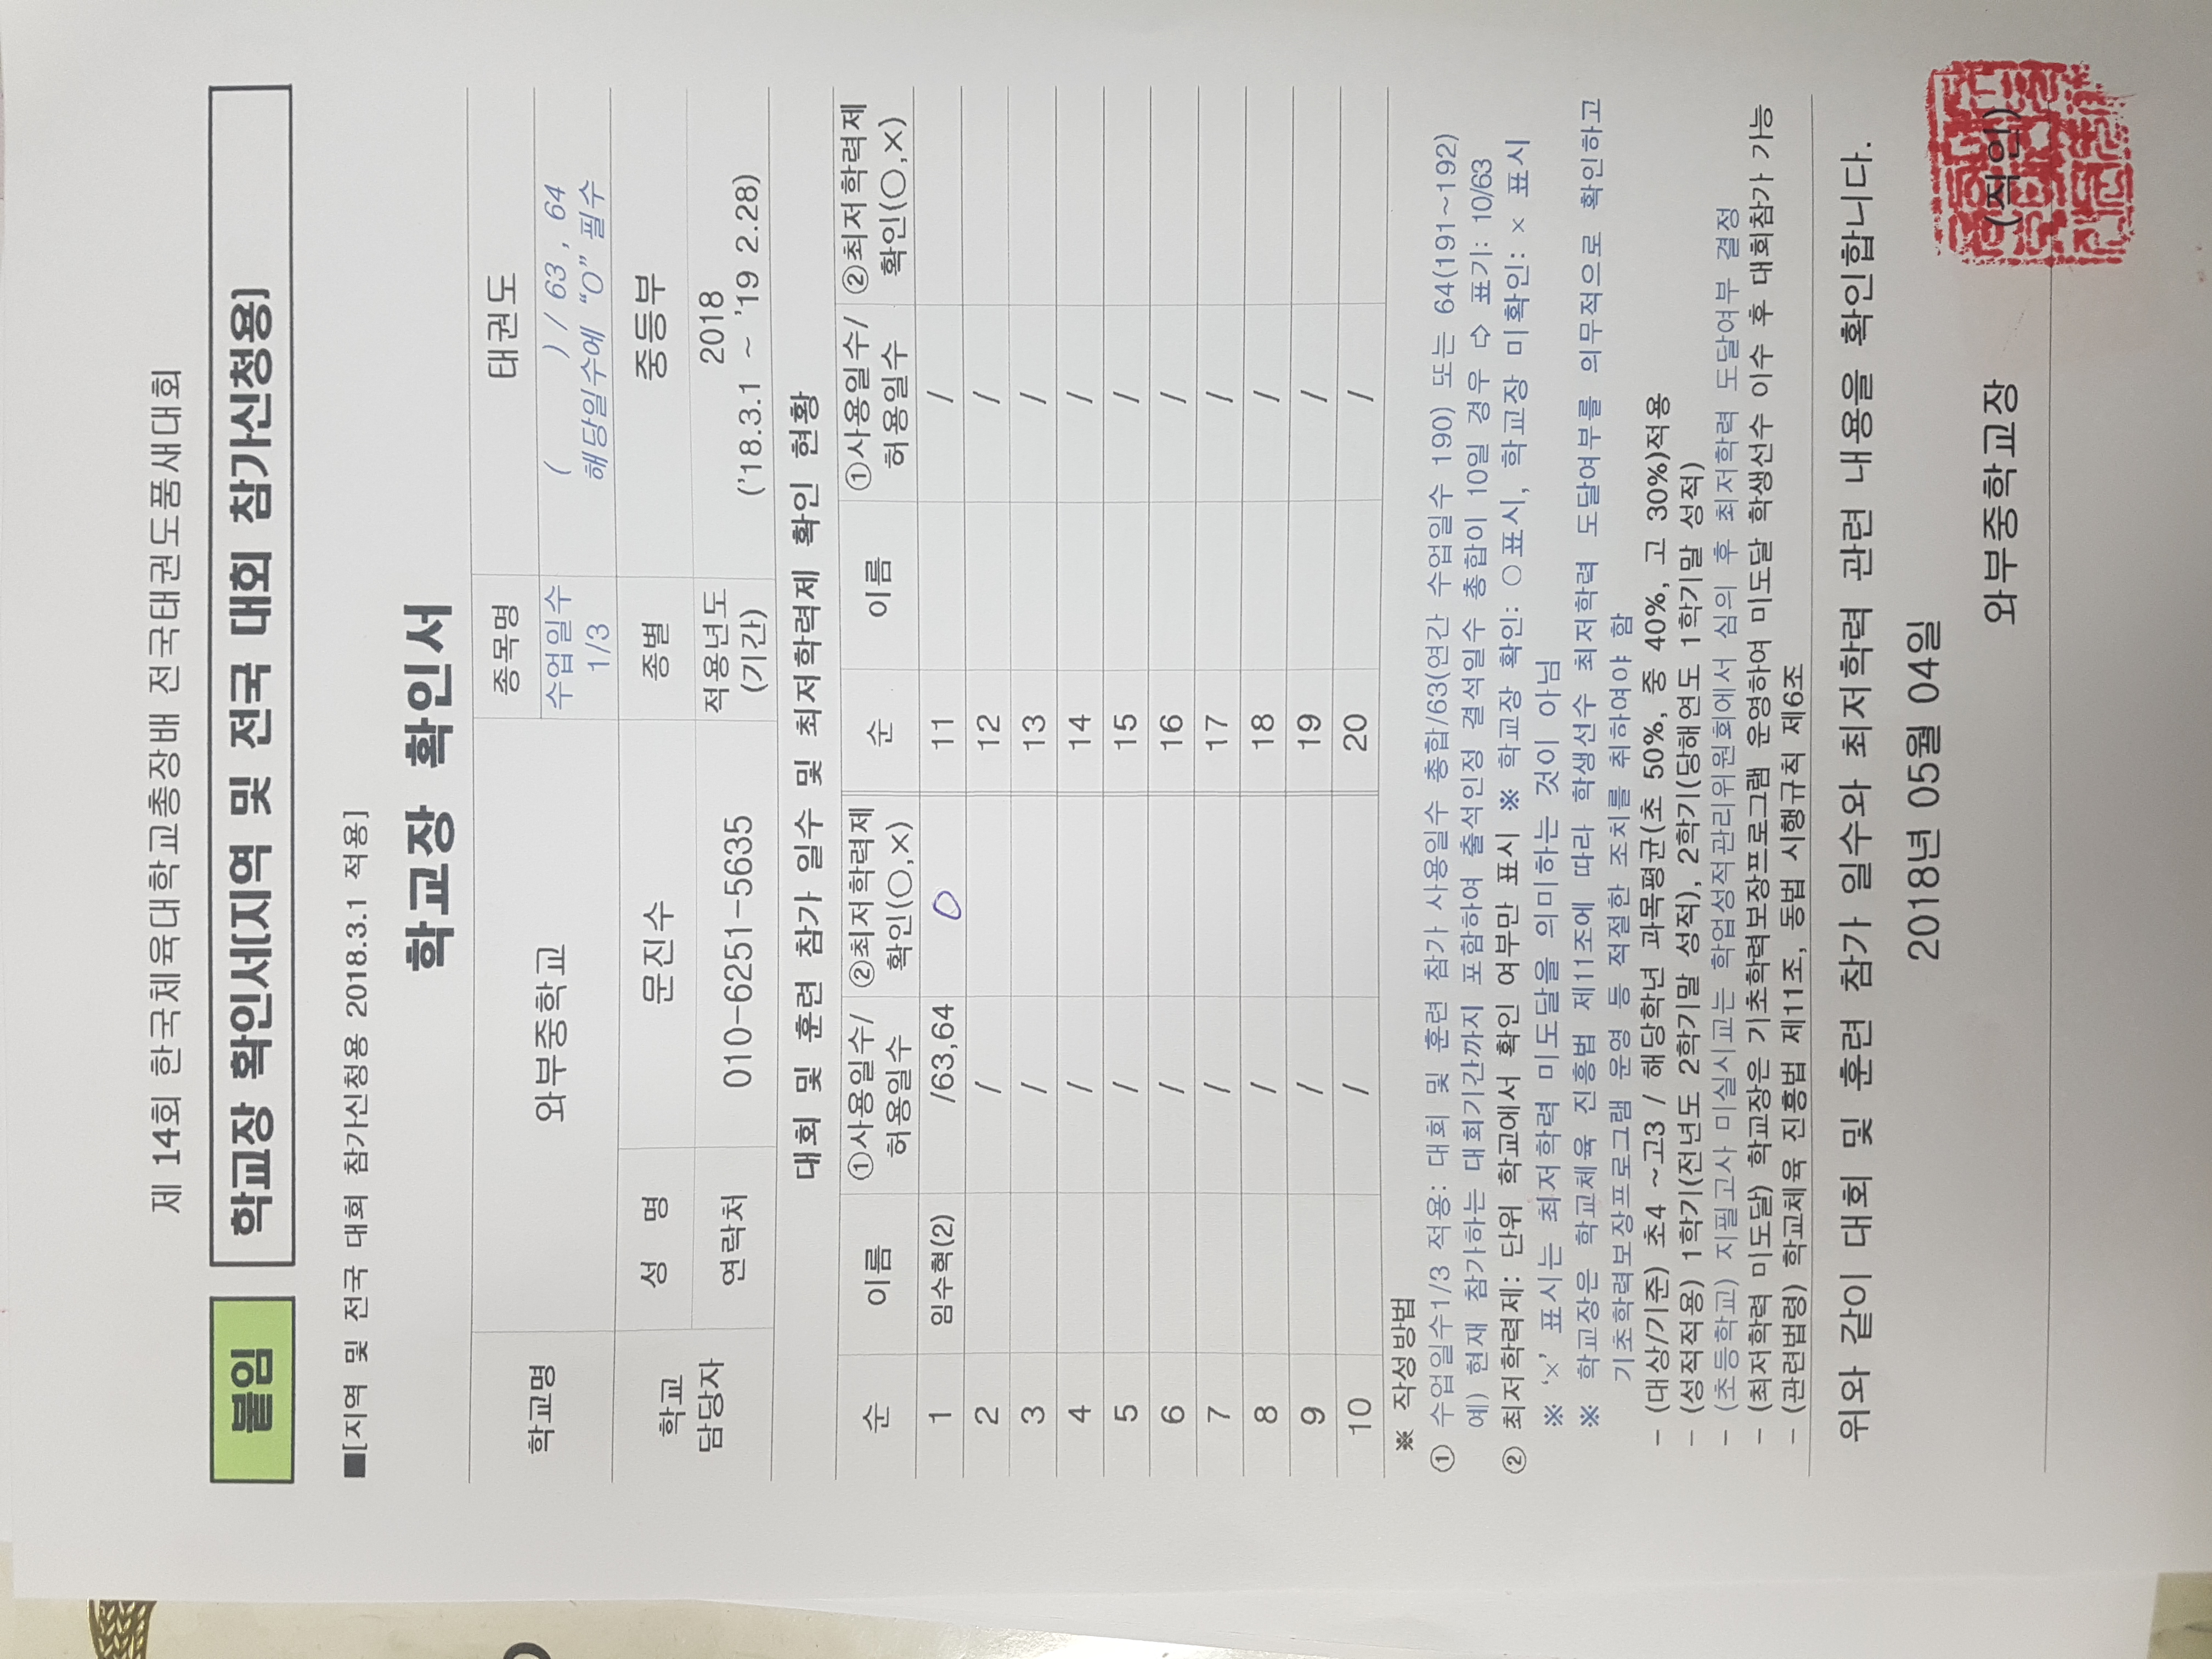 제 14회 한국체육대학교총장배 전국태권도품새대회
붙임 학교장 확인서(지역 및 전국 대회 참가신청용)
■[지역 및 전국 대회 참가신청용 2018.3.1 적용]
학교장 확인서
학교명 와부중학교 종목명 태권도
수업일수 1/3 ( ) / 63 , 64
해당일수에 “O” 필수
학교 담당자 성 명 문진수 종별 중등부
연락처 010-6251-5635 적용년도 (기간) 2018
('18.3.1 ~ '19 2.28)
대회 및 훈련 참가 일수 및 최저학력제 확인 현황
순 이름 ①사용일수/ 허용일수 ②최저학력제 확인(○,×) 순 이름 ①사용일수/ 허용일수 ②최저학력제 확인(○,×)
1 임수혁(2) /63,64 O 11 /
2 / 12 /
3 / 13 /
4 / 14 /
5 / 15 /
6 / 16 /
7 / 17 /
8 / 18 /
9 / 19 /
10 / 20 /
※ 작성방법
① 수업일수1/3 적용: 대회 및 훈련 참가 사용일수 총합/63(연간 수업일수 190) 또는 64(191~192)
예) 현재 참가하는 대회기간까지 포함하여 출석인정 결석일수 총합이 10일 경우 ⇨ 표기: 10/63
② 최저학력제: 단위 학교에서 확인 여부만 표시 ※ 학교장 확인: ○표시, 학교장 미확인: × 표시
※ '×' 표시는 최저학력 미도달을 의미하는 것이 아님
※ 학교장은 학교체육 진흥법 제11조에 따라 학생선수 최저학력 도달여부를 의무적으로 확인하고
기초학력보장프로그램 운영 등 적절한 조치를 취하여야 함
- (대상/기준) 초4 ~고3 / 해당학년 과목평균(초 50%, 중 40%, 고 30%)적용
- (성적적용) 1학기(전년도 2학기말 성적), 2학기(당해연도 1학기말 성적)
- (초등학교) 지필고사 미실시교는 학업성적관리위원회에서 심의 후 최저학력 도달여부 결정
- (최저학력 미도달) 학교장은 기초학력보장프로그램 운영하여 미도달 학생선수 이수 후 대회참가 가능
- (관련법령) 학교체육 진흥법 제11조, 동법 시행규칙 제6조
위와 같이 대회 및 훈련 참가 일수와 최저학력 관련 내용을 확인합니다.
2018년 05월 04일
와부중학교장 (직인)